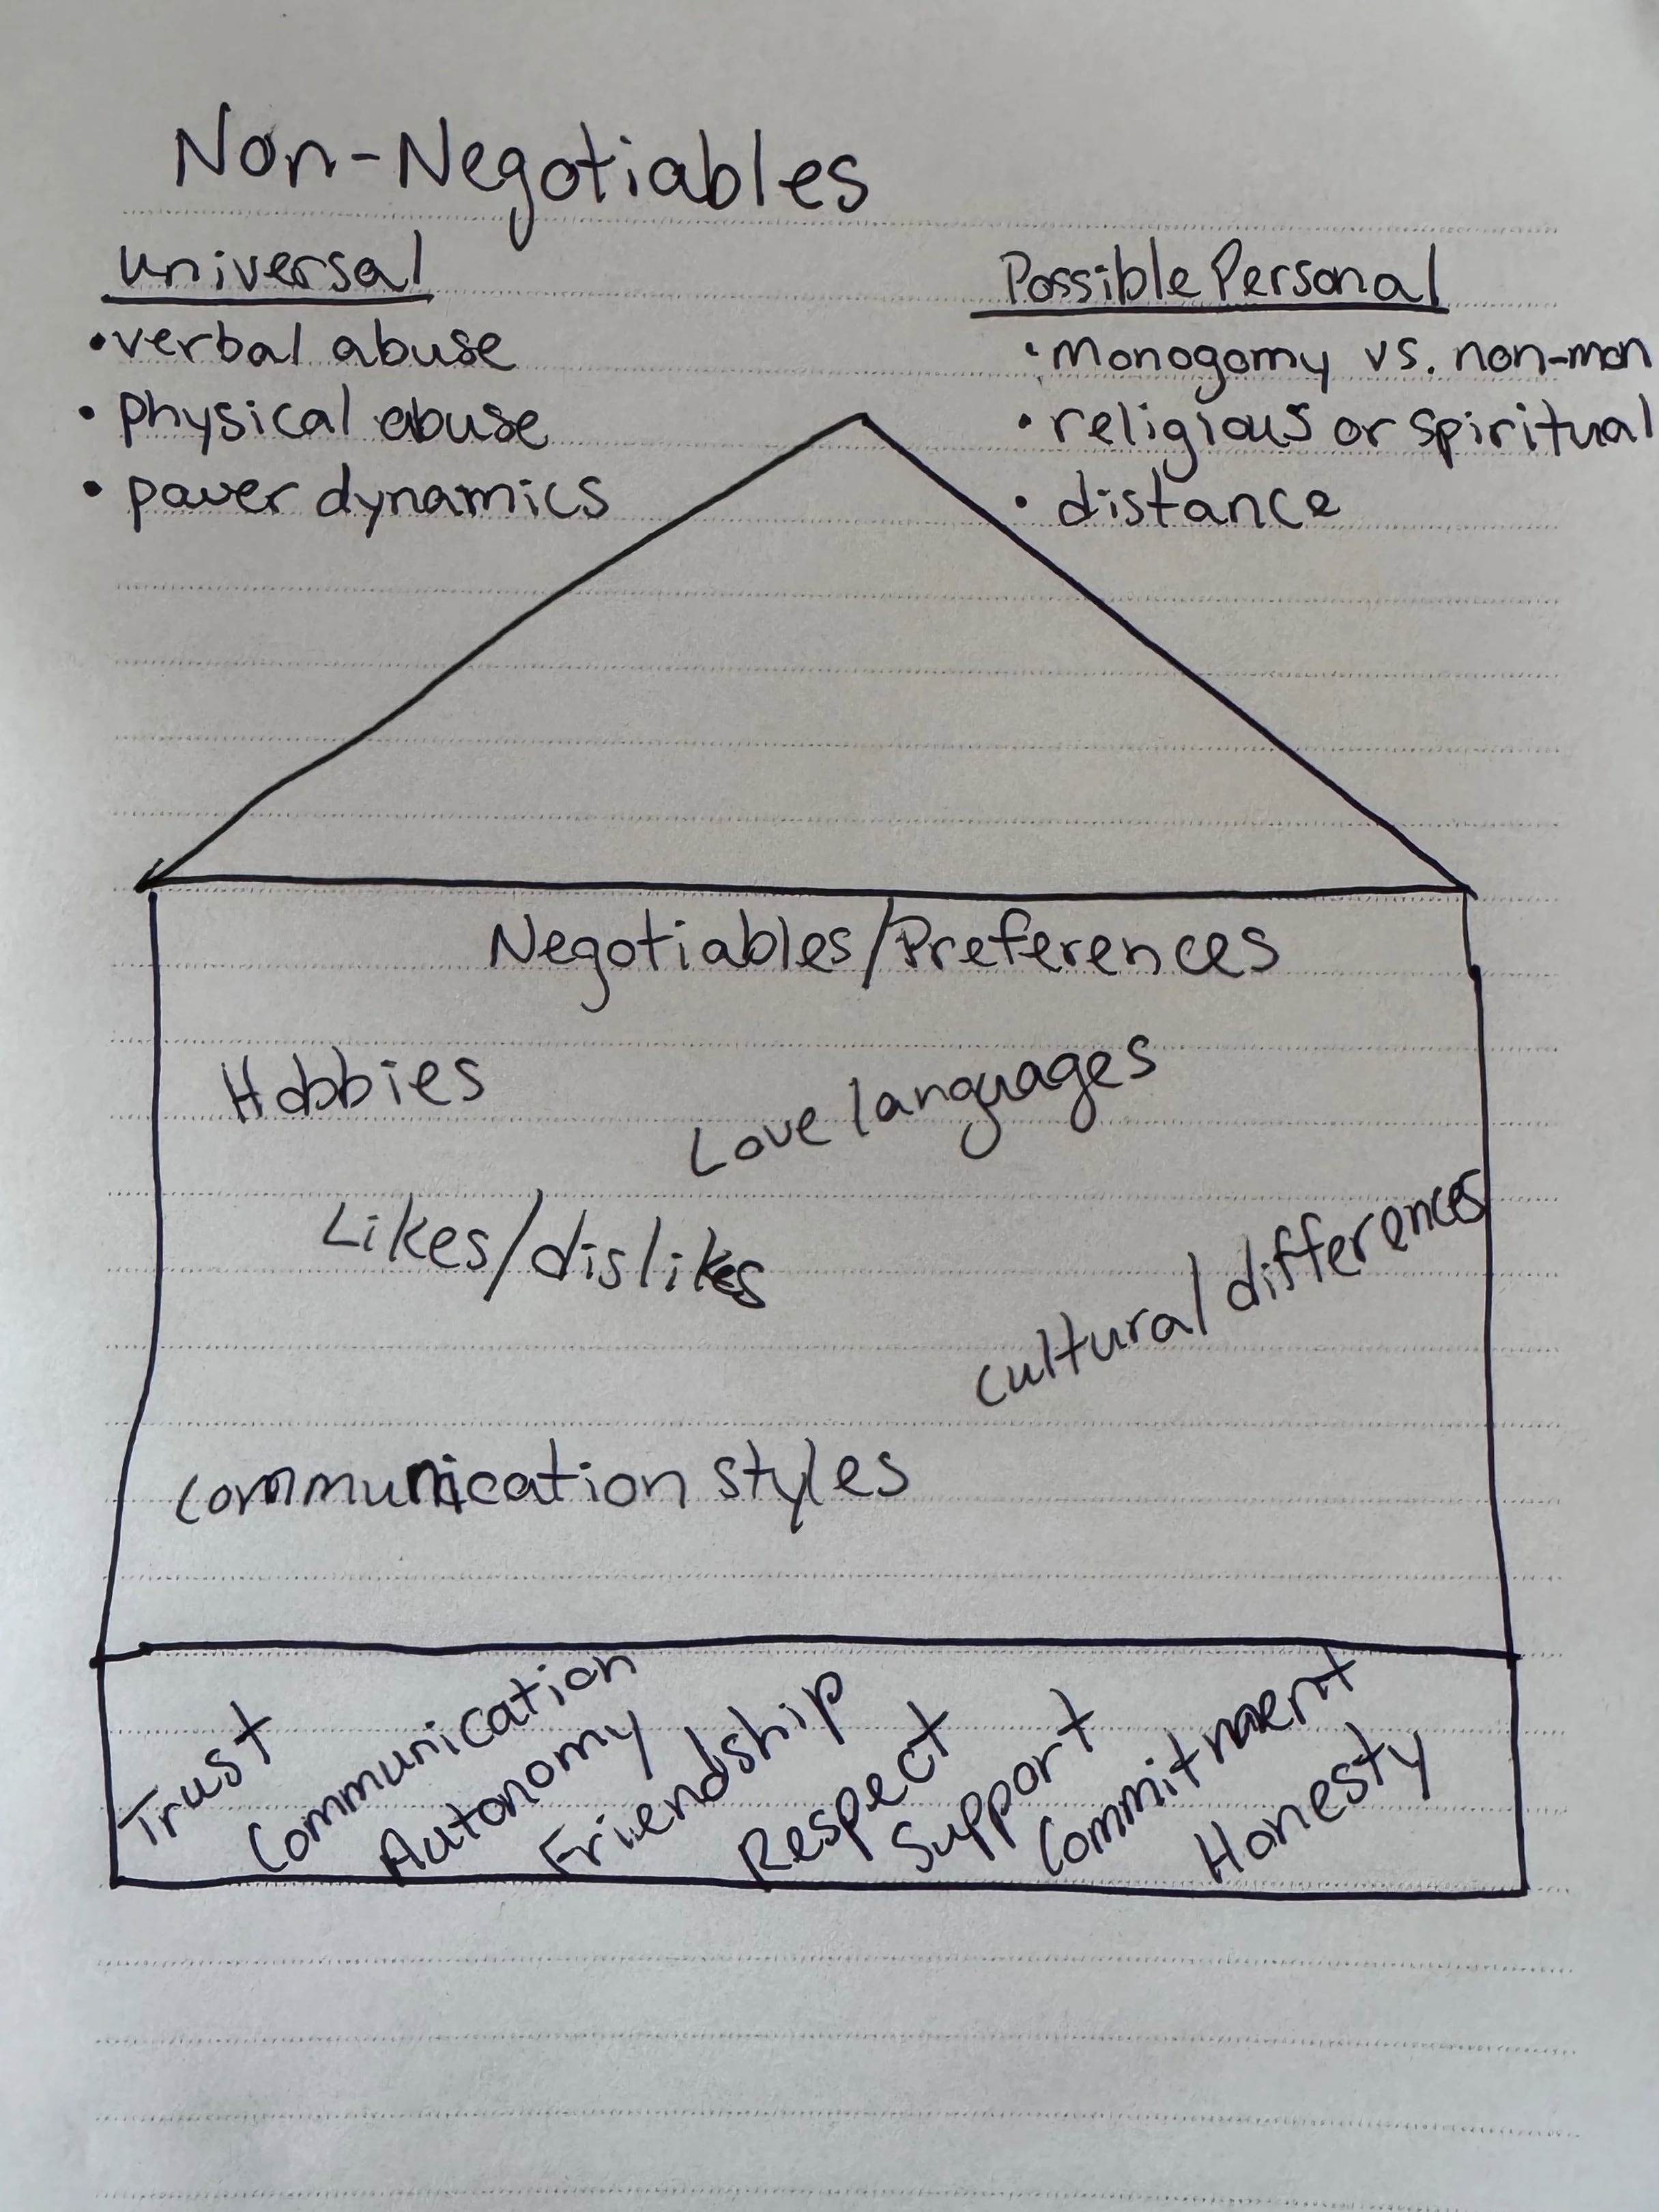 Non-Negotiables
universal
• verbal abuse
• physical abuse
• power dynamics
Possible Personal
• Monogomy vs. non-mon
• religious or spiritual
• distance
Negotiables/Preferences
Hobbies
Love languages
Likes/dislikes
cultural differences
communication styles
Trust
Communication
Autonomy
Friendship
Respect
Support
Commitment
Honesty